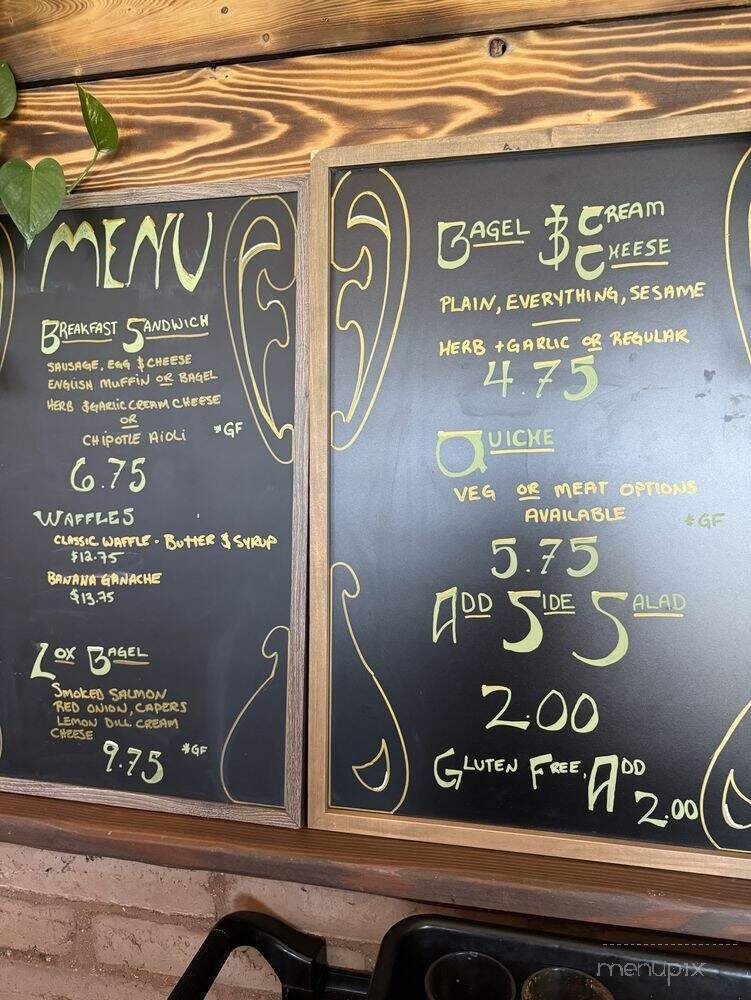 MENU
BREAKFAST SANDWICH
SAUSAGE, EGG & CHEESE
ENGLISH MUFFIN OR BAGEL
HERB & GARLIC CREAM CHEESE
OR
CHIPOTLE AIOLI *GF
6.75
WAFFLES
CLASSIC WAFFLE - BUTTER & SYRUP
$12.75
BANANA GANACHE
$13.75
LOX BAGEL
SMOKED SALMON
RED ONION, CAPERS
LEMON DILL CREAM
CHEESE
9.75 *GF
BAGEL & CREAM
CHEESE
PLAIN, EVERYTHING, SESAME
HERB + GARLIC OR REGULAR
4.75
QUICHE
VEG OR MEAT OPTIONS
AVAILABLE *GF
5.75
ADD SIDE SALAD
2.00
GLUTEN FREE, ADD
2.00
menupix